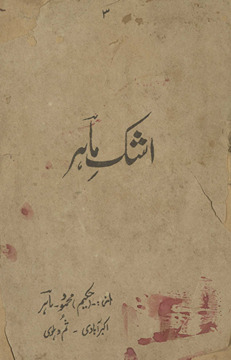 ۳
اشکِ ماہر
(حکیم) محمود ماہر
اکبرآبادی - ثم دہلوی